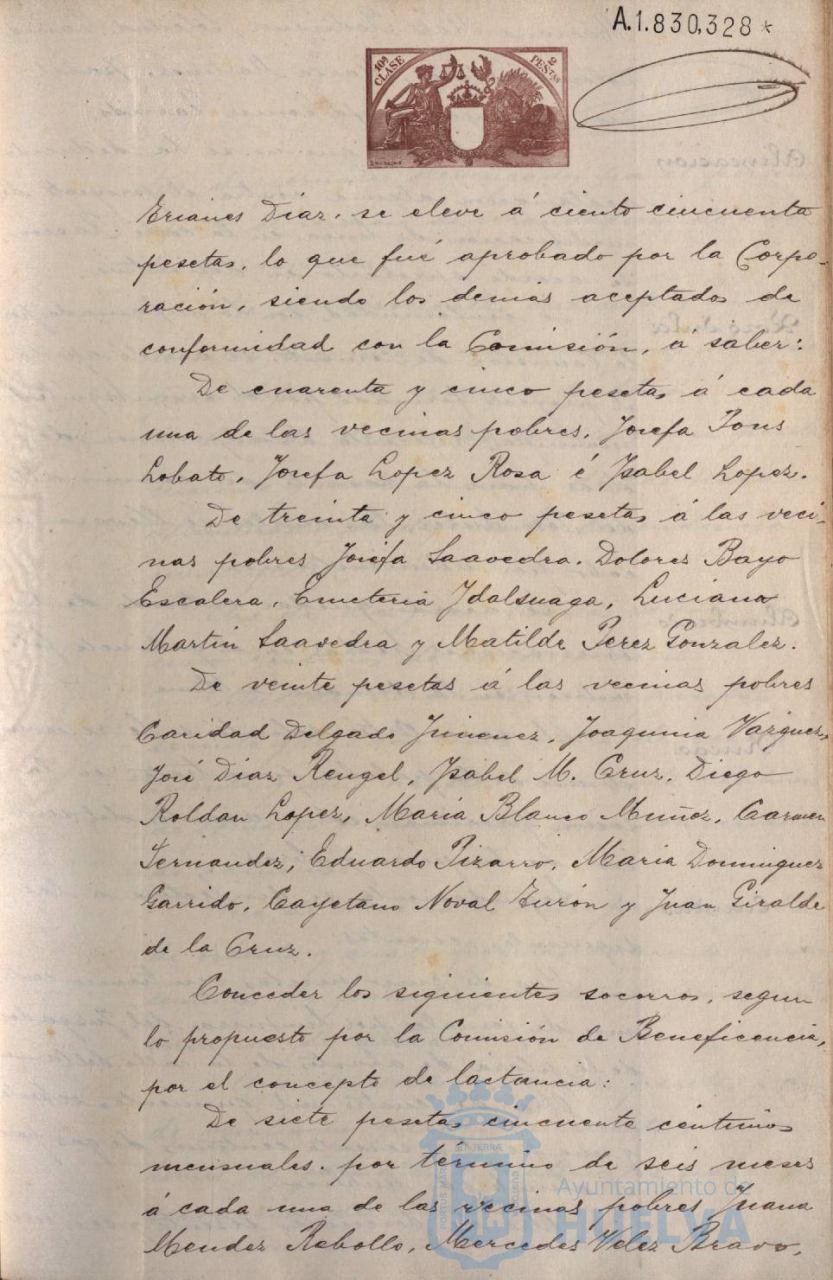 A.1.830,328*
10ª CLASE
2 PESETAS
Erianes Diaz, se eleve á ciento cincuenta
pesetas, lo que fué aprobado por la Corpo-
ración, siendo los demás aceptados de
conformidad con la Comisión, á saber:
De cuarenta y cinco pesetas á cada
una de las vecinas pobres, Josefa Pons
Lobato, Josefa Lopez Rosa é Isabel Lopez.
De treinta y cinco pesetas á las veci-
nas pobres Josefa Saavedra, Dolores Bayo
Escalera, Emeteria Idalsuaga, Luciana
Martin Saavedra y Matilde Perez Gonzalez.
De veinte pesetas á las vecinas pobres
Caridad Delgado Jimenez, Joaquina Vazquez,
José Diaz Rengel, Isabel M. Cruz, Diego
Roldan Lopez, Maria Blanco Muñoz, Carmen
Fernandez, Eduardo Pizarro, Maria Dominguez
Garrido, Cayetano Noval Turón y Juan Giralde
de la Cruz.
Conceder los siguientes socorros, segun
lo propuesto por la Comisión de Beneficencia,
por el concepto de lactancia:
De siete pesetas cincuenta céntimos
mensuales, por término de seis meses
á cada una de las vecinas pobres Juana
Mendez Rebollo, Mercedes Velez Bravo,
Ayuntamiento de
HUELVA